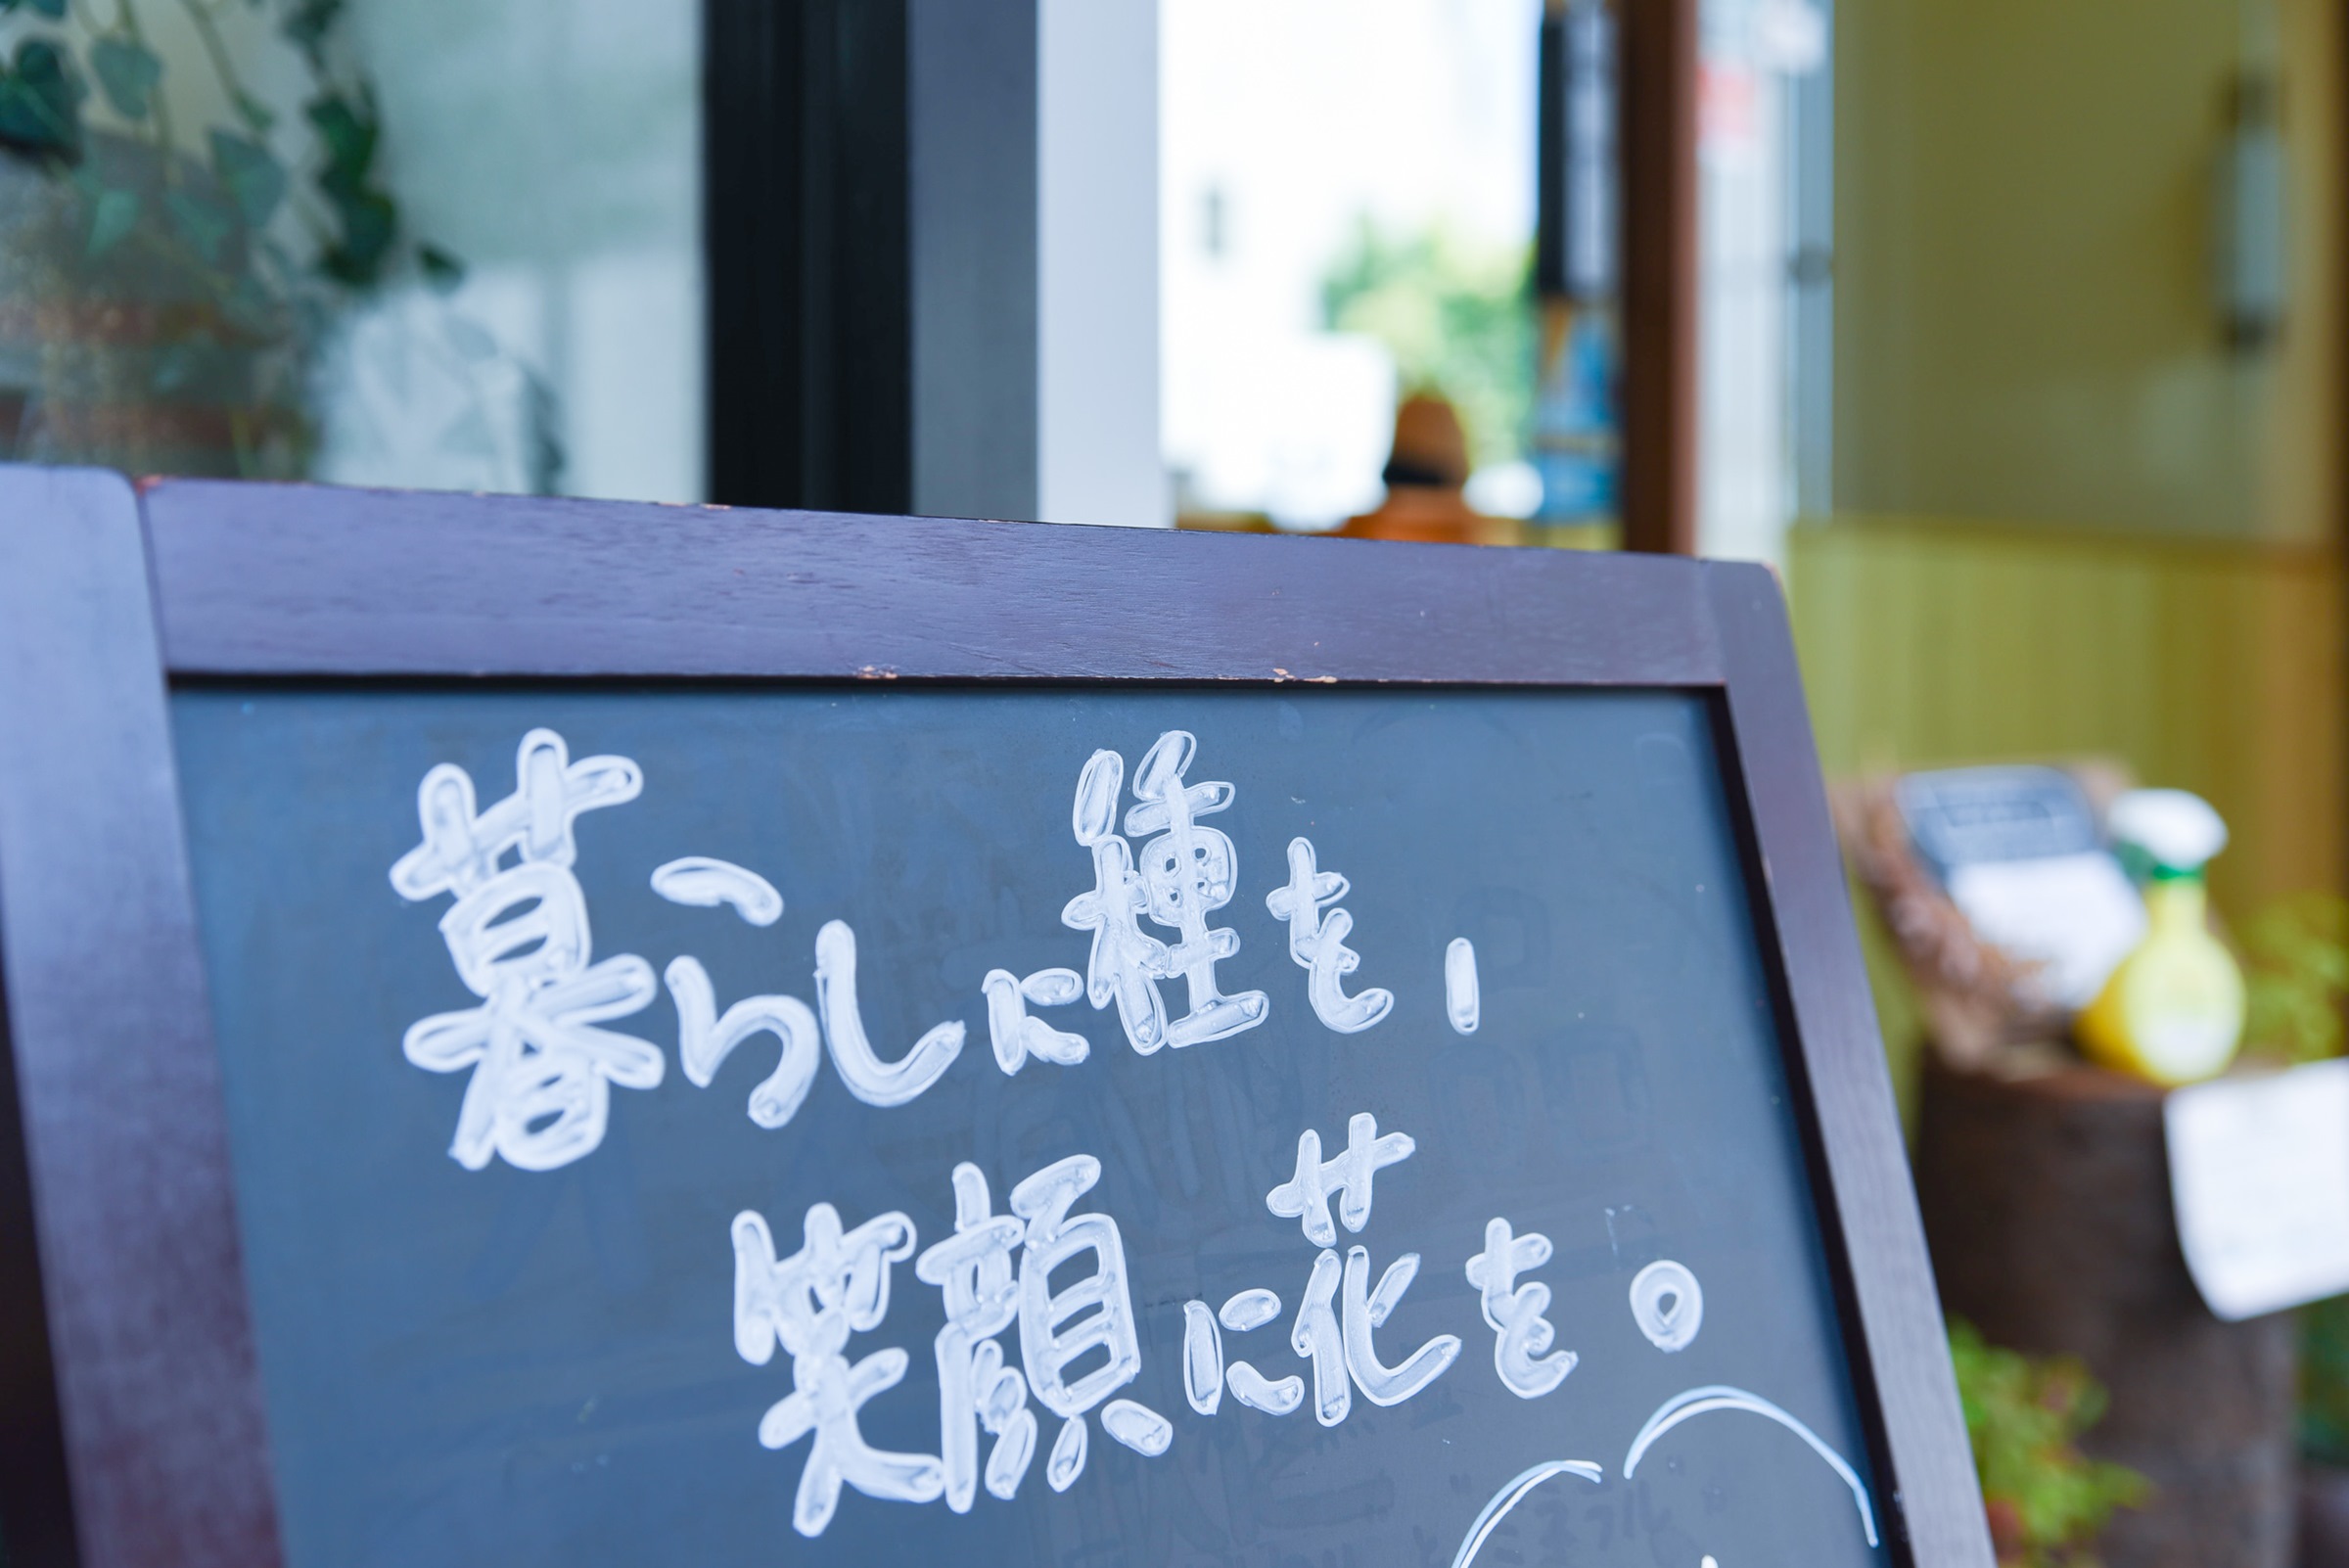 暮らしに種を、
笑顔に花を。